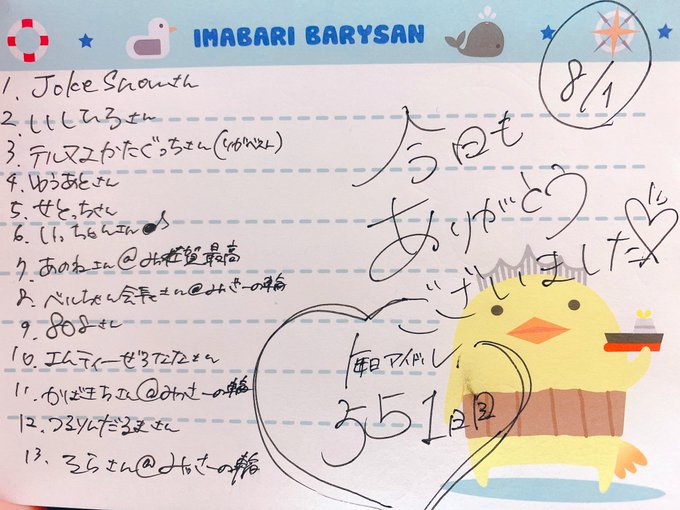 IMABARI BARYSAN
8/1
1. Joke Snowさん
2. いしひろさん
3. テルマエかたぐっちさん(いがベスト)
4. ゆうあとさん
5. せとっちさん
6. いっちゃんさん♪
7. あのねさん@みか佐賀最高
8. ベルちゃん会長さん@みかさーの輪
9. 808さん
10. エムティーぜろななさん
11. かばきちさん@みかさーの輪
12. つるりんだるまさん
13. そらさん@みかさーの輪
今日も
ありがとう
ございました♡
1年目アイドル
551日目